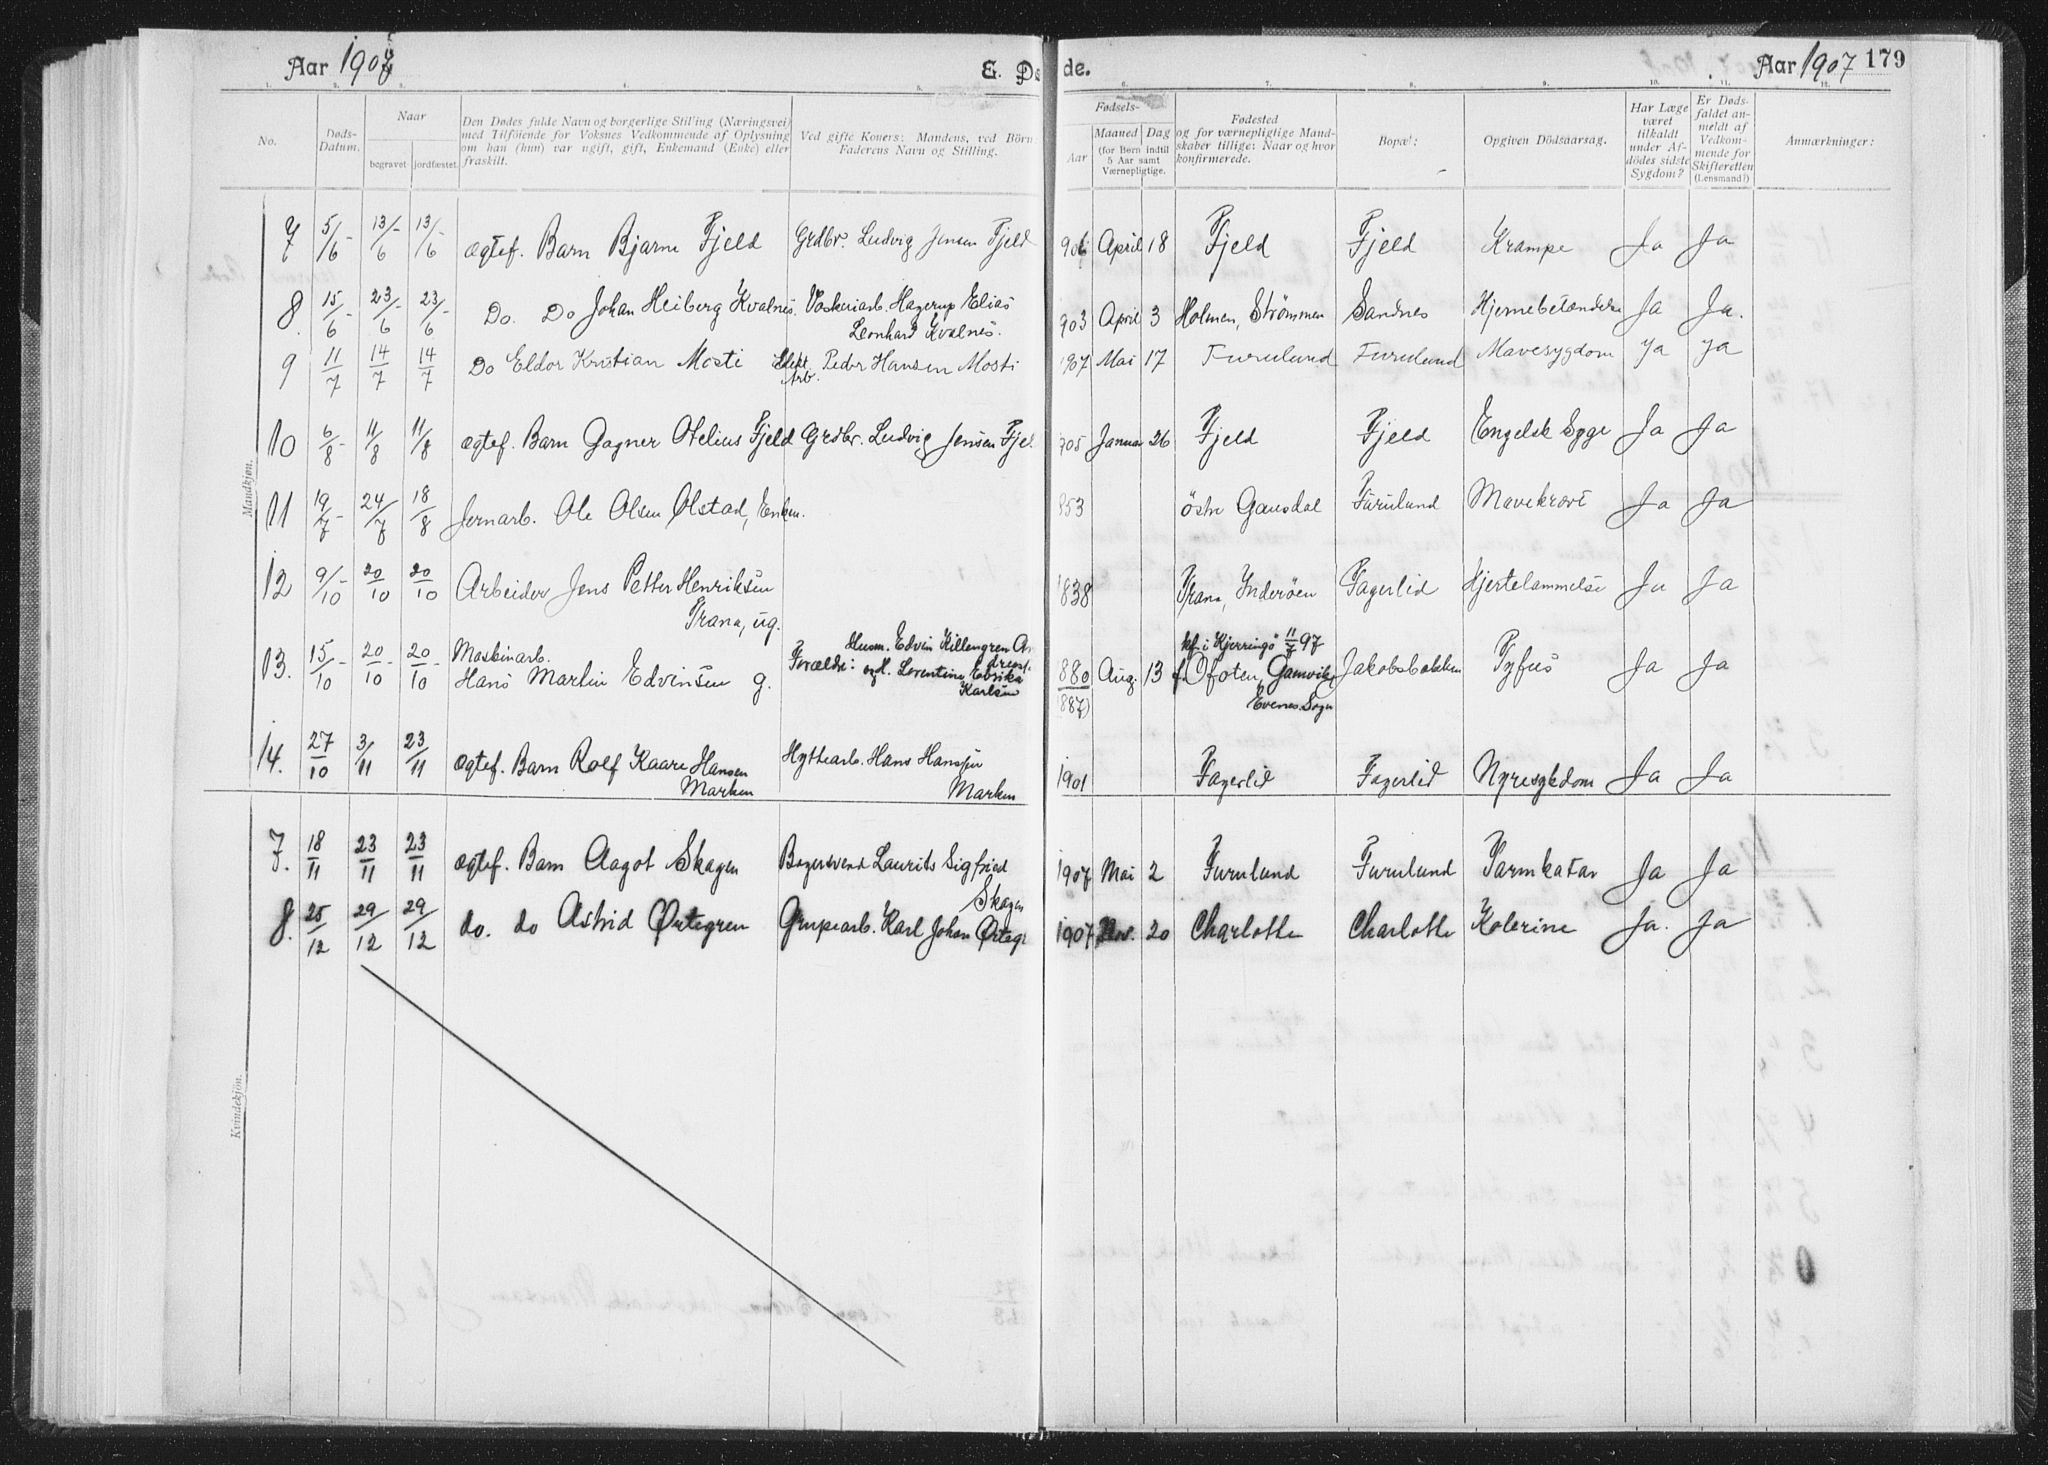 Aar 1907 E. Dø de. Aar 1907 179
1. 2. 3. 4. 5. 6. 7. 8. 9. 10. 11. 12.
No. Døds-Datum. Naar begravet jordfæstet. Den Dødes fulde Navn og borgerlige Stilling (Næringsvei) med Tilföiende for Voksnes Vedkommende af Oplysning om han (hun) var ugift, gift, Enkemand (Enke) eller fraskilt. Ved gifte Koner: Mandens, ved Börn Faderens Navn og Stilling. Fødsels- Aar Maaned Dag (for Børn indtil 5 Aar samt Værnepligtige. Fødested og for værnepligtige Mandskaber tillige: Naar og hvor konfirmerede. Bopæl: Opgiven Dödsaarsag. Har Læge været tilkaldt under Afdödes sidste Sygdom? Er Dødsfaldet anmeldt af Vedkommende for Skifteretten (Lensmand?) Anmærkninger:
Mandkjøn.
7 5/6 - 13/6 - 13/6 - ægtef. Barn Bjarne Fjeld Grdbr. Ludvig Jensen Fjeld 906 April 18 Fjeld Fjeld Krampe Ja Ja
8. 15/6 - 23/6 - 23/6 - Do. Do Johan Heiberg Kvalnes. Vaskeriarb. Hagerup Elias
Leonhard Kvalnes. 903 April 3 Holmen, Strømmen Sandnes Hjernebetændelse Ja Ja.
9 11/7 14/7 14/7 Do Eldor Kristian Mosti Elekt. Arb. Peder Hansen Mosti 1907 Mai 17 Furulund Furulund Mavesygdom Ja Ja
10 6/8 - 11/8 11/8 ægtef. Barn Gagner Otelius Fjeld Grdbr. Ludvig Jensen Fjel 905 Januar 26 Fjeld Fjeld Engelsk Syge Ja Ja
11 19/7 - 24/7 18/8 Jernarb. Ole Olsen Olstad, Enkem. 853 östre Gausdal Furulund Mavekræft Ja Ja
12 9/10 - 20/10 20/10 Arbeider Jens Petter Henriksen
Trana, ug. 1838 Trana, Inderöen Fagerlid Hjertelammelse Ja Ja
13. 15/10 - 20/10 - 20/10 - Maskinarb.
Hans Martin Edvinsen g. Forældre: Husm. Edvin Killengren
og H. Lorentine Edrika
Karlsen 880 (887) Aug. 13 kf. i Kjerringö 11/7 97
f. Ofoten, Gamvik,
Evenes Sogn Jakobsbakken Tyfus Ja Ja
14. 27/10 3/11 23/11 ægtef. Barn Rolf Kaare Hansen
Marken Hyttearb. Hans Hansen
Marken 1901 Fagerlid Fagerlid Nyresykdom Ja Ja
Kvindekjön.
7. 18/11 23/11 23/11 ægtef. Barn Aagot Skagen Bagersvend Laurits Sigfried
Skagen 1907 Mai 2 Furulund Furulund Tarmkatar Ja Ja
8. 25/12 29/12 29/12 do. do Astrid Örtegren Grupearb. Karl Johan Örteg 1907 Nov. 20 Charlotte Charlotte Kolerine Ja. Ja